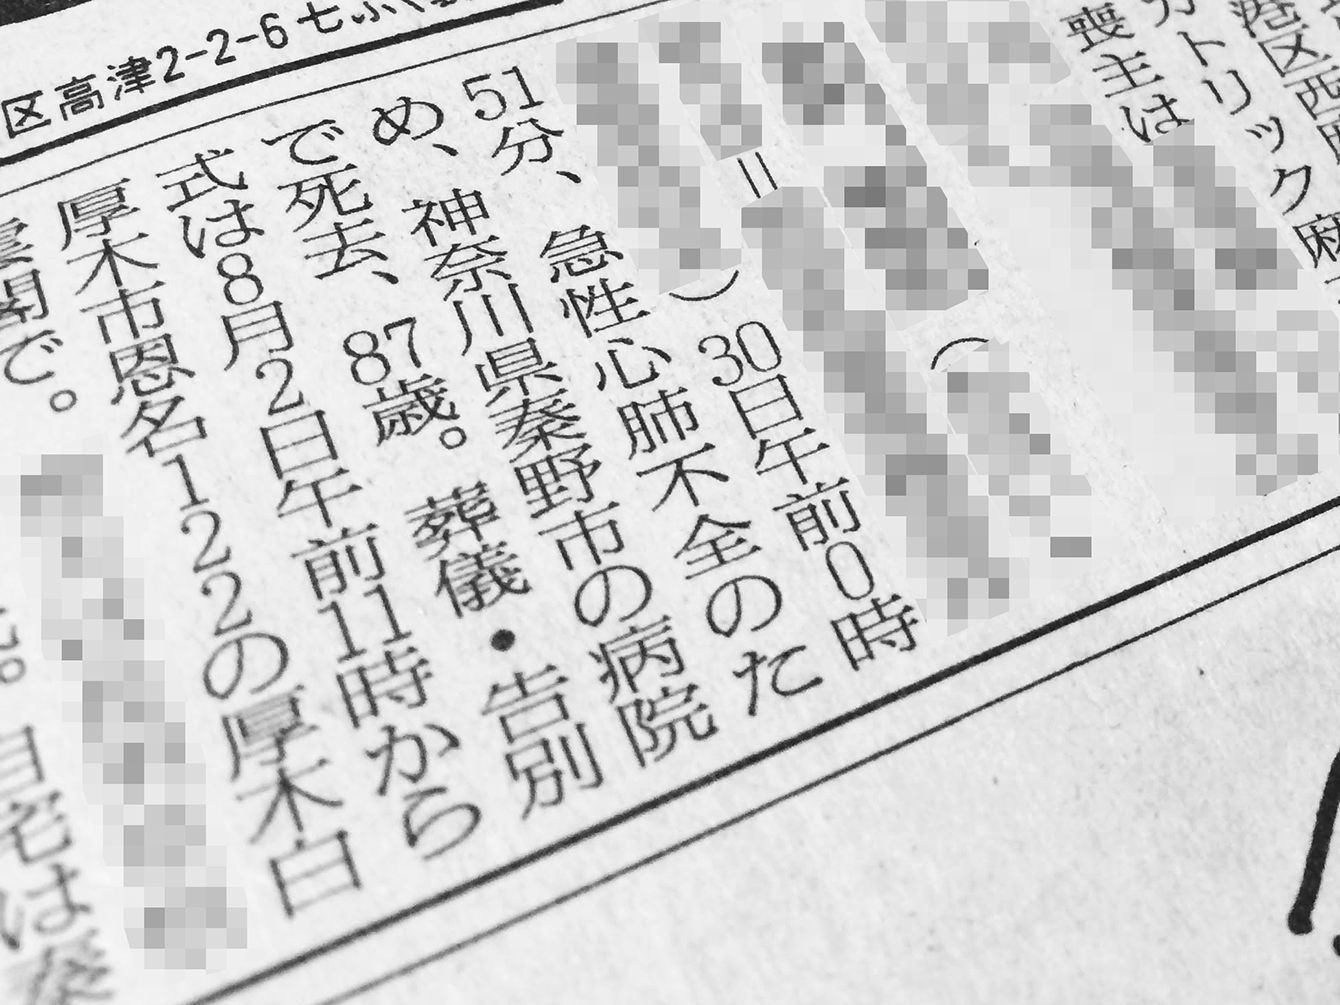 区高津2-2-6七ふく
港区西麻
カトリック麻
喪主は
（
＝
）30日午前0時
51分、急性心肺不全のた
め、神奈川県秦野市の病院
で死去、87歳。葬儀・告別
式は8月2日午前11時から
厚木市恩名122の厚木白
雲閣で。
自宅は秦